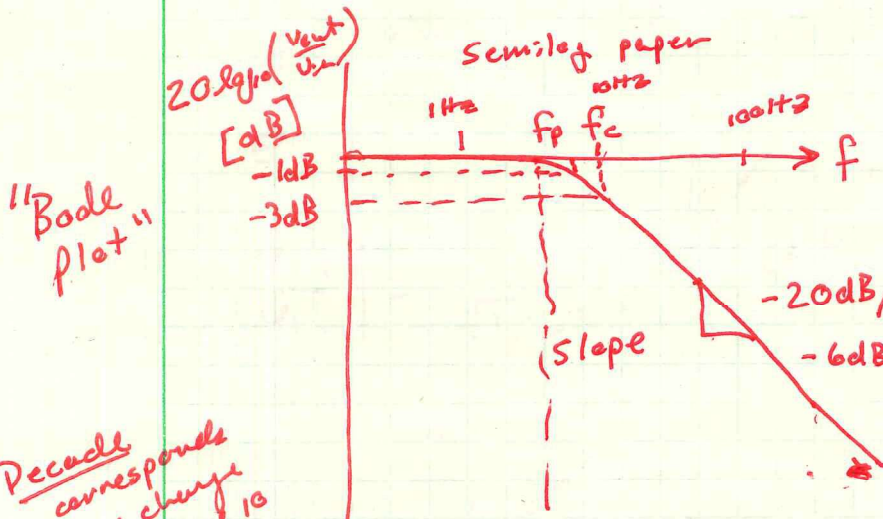 20log₁₀(Vout/Vin)
[dB]
semilog paper
1Hz
fp fc
10Hz
100Hz
f
-1dB
-3dB
"Bode
Plot"
-20dB/
-6dB
Slope
Decade
corresponds
change
10